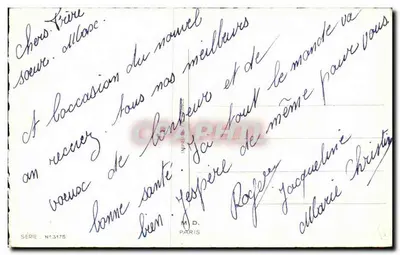 Chers Frère
soeur. Max.
A l'occasion du nouvel
an recevez tous nos meilleurs
voeux de bonheur et de
bonne santé. Ici tout le monde va
bien. J'espère de même pour vous
Roger. Jacqueline
Marie Christine
SERIE N° 3176
M.D.
PARIS